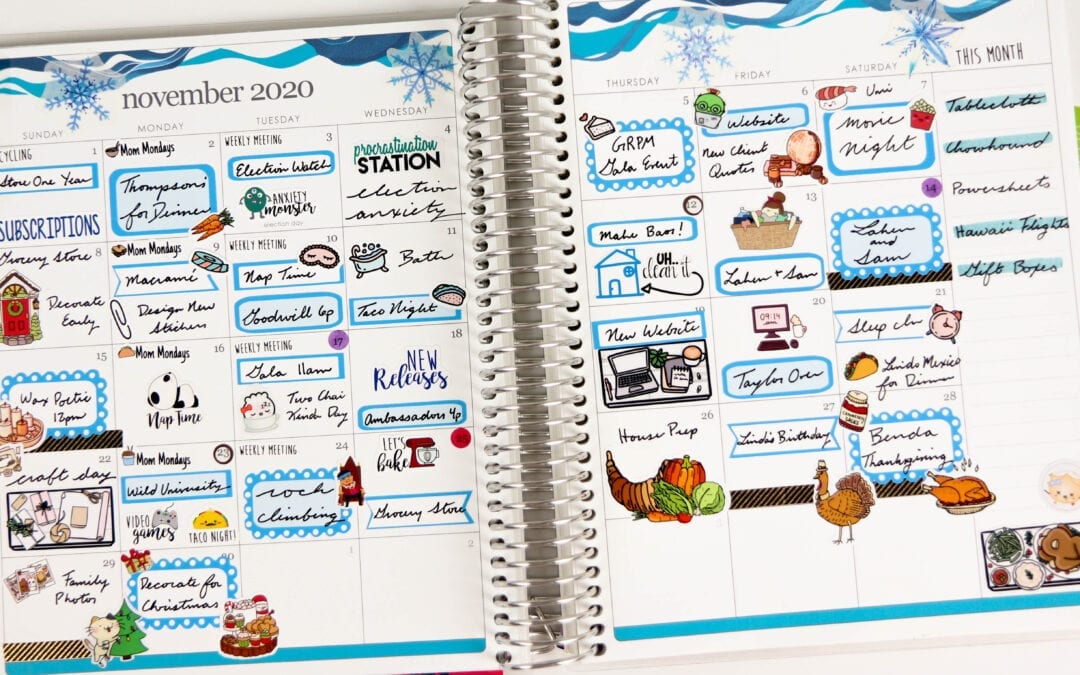 november 2020
SUNDAY
MONDAY
TUESDAY
WEDNESDAY
THURSDAY
FRIDAY
SATURDAY
THIS MONTH
CYCLING
1
Store One Year
SUBSCRIPTIONS
Mom Mondays
2
Thompsons
for Dinner
WEEKLY MEETING
3
Election Watch
ANXIETY
monster
election day
4
procrastination
STATION
election
anxiety
5
GRPM
Gala Event
6
Website
New Client
Quotes
7
Uni
movie
night
Tablecloth
Chowhound
Powersheets
Hawaii Flights
Gift Boxes
8
Grocery Store
Decorate
Early
Mom Mondays
9
Macramé
Design New
Stickers
WEEKLY MEETING
10
Nap Time
Goodwill 6p
11
Bath
Taco Night
12
Make Baos!
UH..
clean it
13
Lahen + Sam
14
Lahen
and
Sam
15
Wax Poetic
12pm
Mom Mondays
16
Nap Time
WEEKLY MEETING
17
Gala 11am
Two Chai
Kinda Day
18
NEW
Releases
Ambassadors 4p
19
New Website
20
09:14
Taylor Over
21
Sleep In
Lindo Mexico
for Dinner
22
craft day
Mom Mondays
23
Wild University
VIDEO
games
TACO NIGHT!
WEEKLY MEETING
24
rock
climbing
25
LET'S
bake
Grocery Store
26
House Prep
27
Linda's Birthday
28
CRANBERRY
SAUCE
Benda
Thanksgiving
29
Family
Photos
30
Decorate for
Christmas
1
2
3